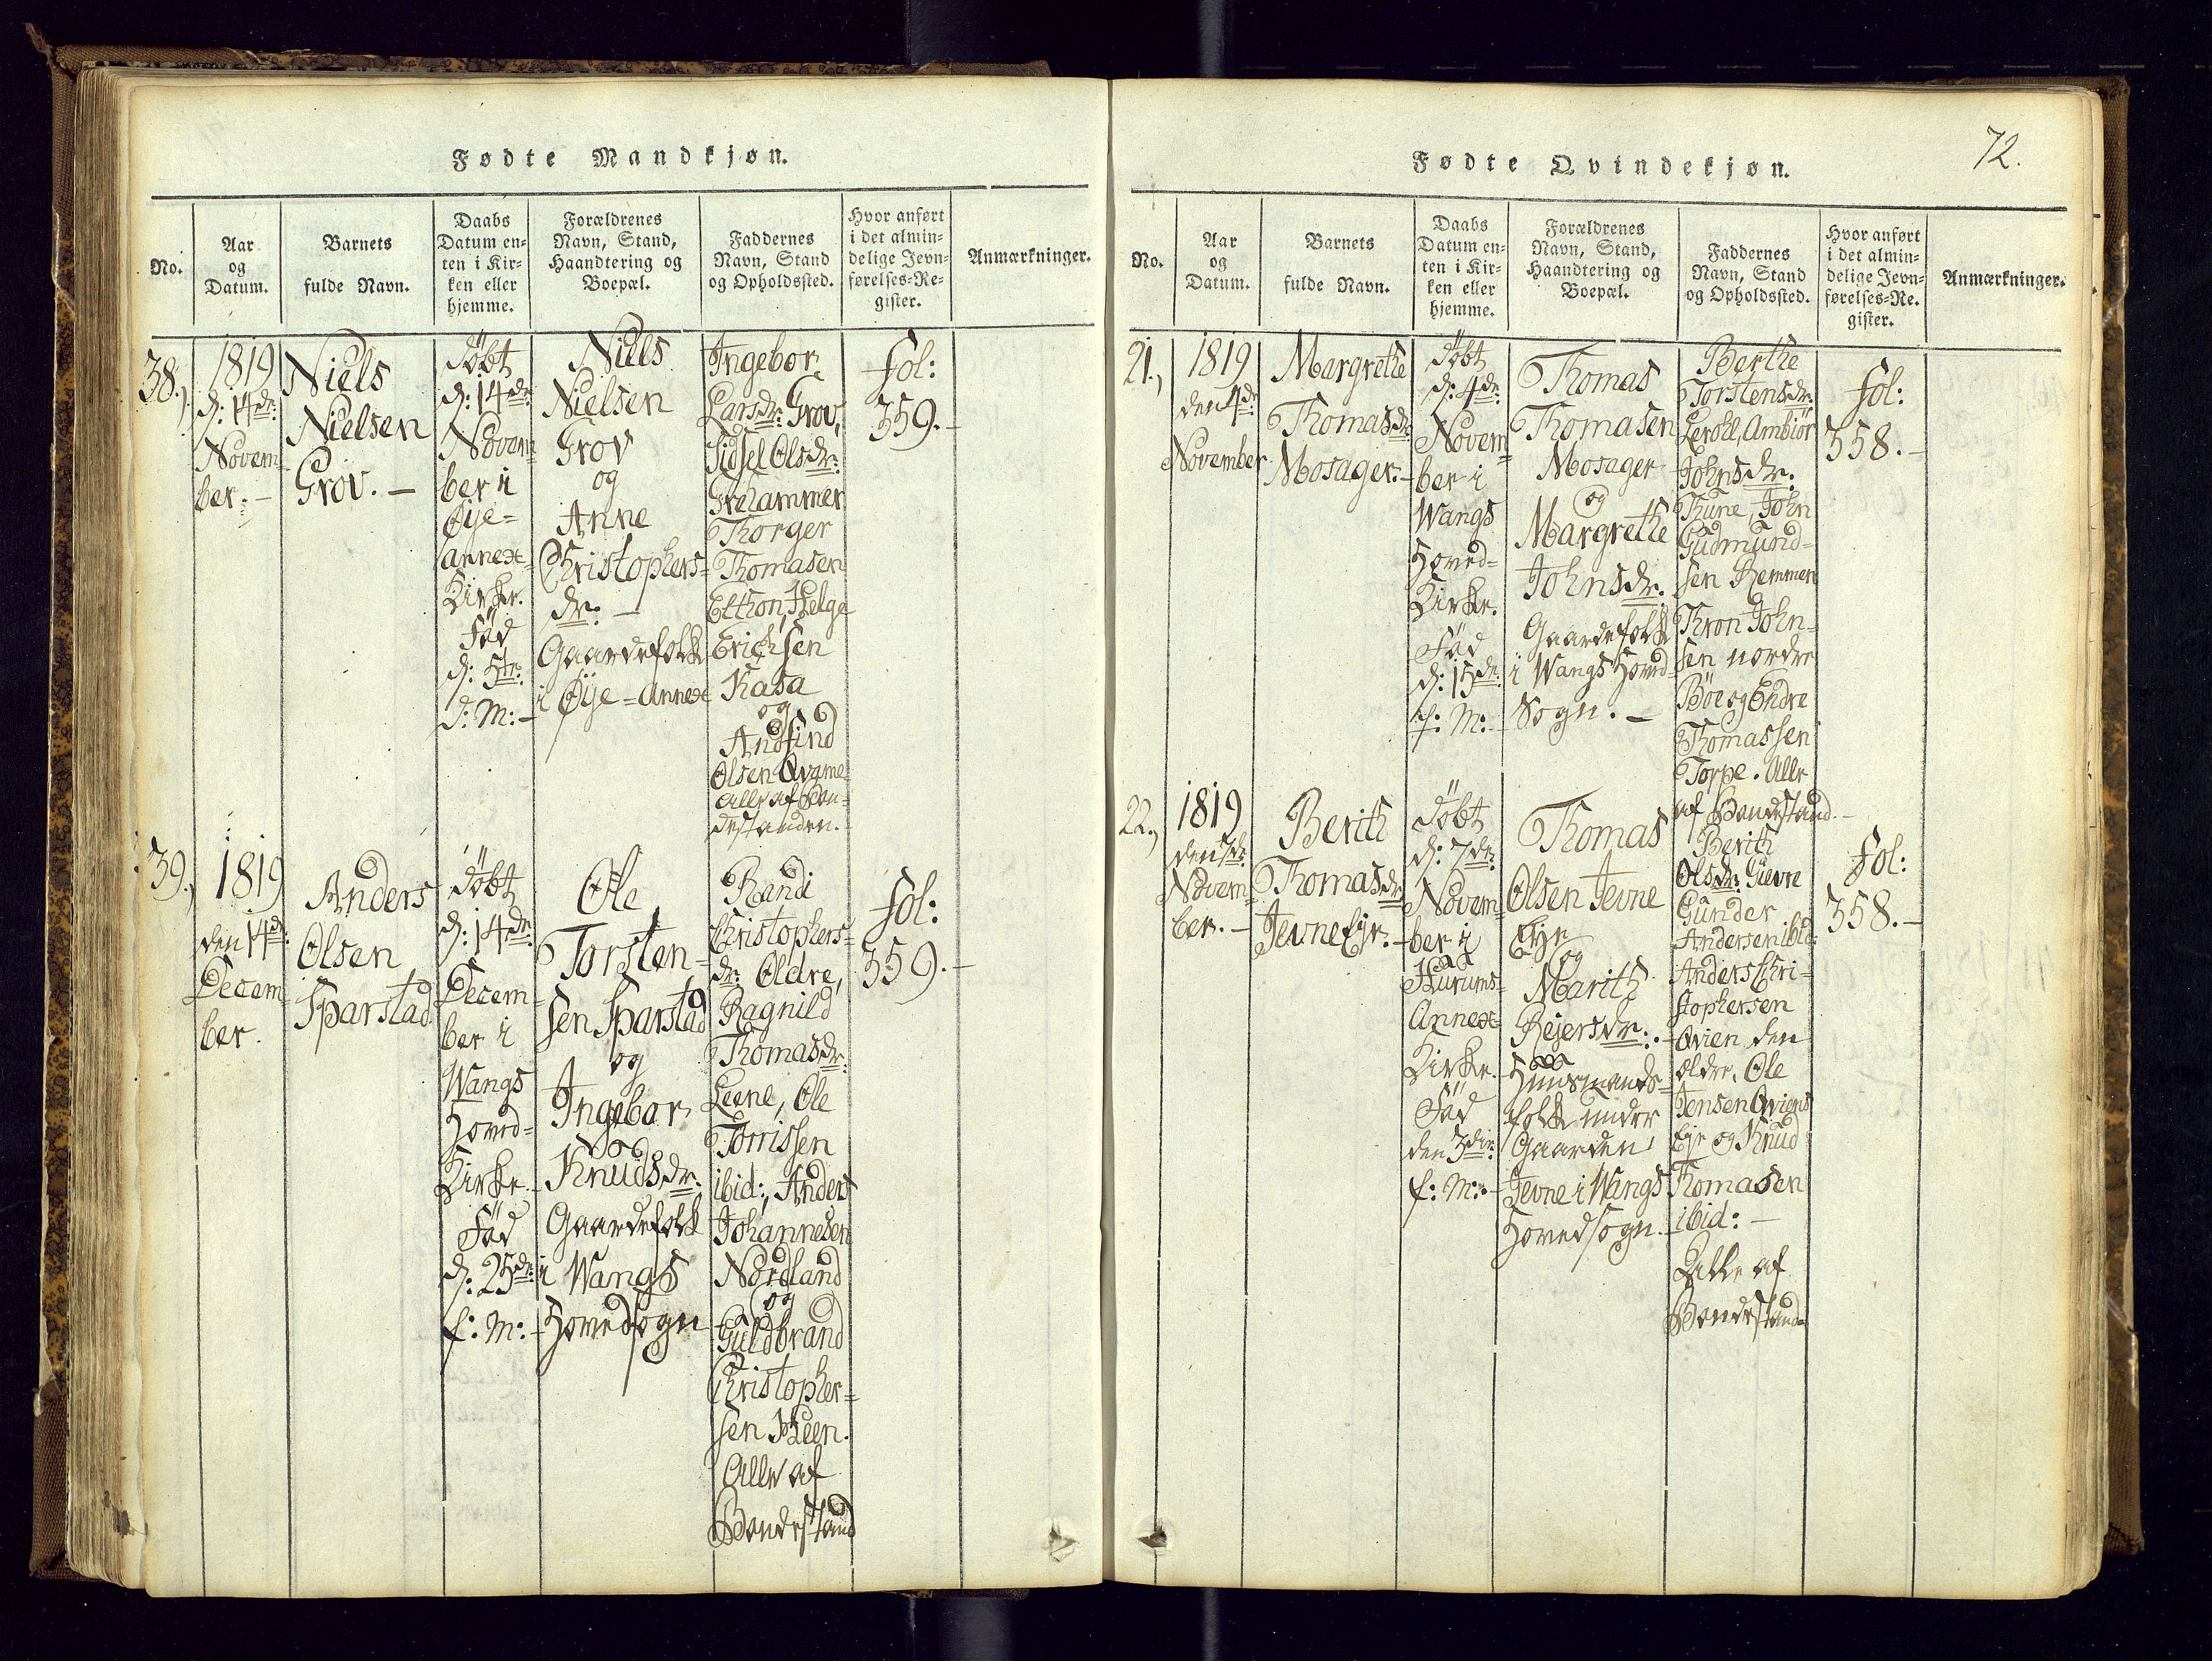 Fødte Mandkjøn.
No.
Aar
og
Datum.
Barnets
fulde Navn.
Daabs
Datum en-
ten i Kir-
ken eller
hjemme.
Forældrenes
Navn, Stand,
Haandtering og
Boepæl.
Faddernes
Navn, Stand
og Opholdssted.
Hvor anført
i det almin-
delige Jevn-
førelses-Re-
gister.
Anmærkninger.
38.,
1819
d: 14de:
Novem-
ber. -
Niels
Nielsen
Grov. -
Döbt
d: 14de:
Novem-
ber i
Øye-
annex-
Kirke.
Föd
d: 5te:
s: M: -
Niels
Nielsen
Grov
og
Anne
Christophers-
dr. -
Gaardefolk
i Øye-Annex
Ingebor
Larsdr: Grov,
Sidsel Olsdr:
Grehammer
Thorger
Thomasen
Elthon, Helge
Erichsen
Kasa
og
Andfind
Olsen Qvame
Alle af Bon-
destanden.
fol:
359. -
39.,
1819
den 14de:
Decem-
ber.
Anders
Olsen
Sparstad.
Döbt
d: 14de:
Decem-
ber i
Wangs
Hoved-
Kirke. -
Föd
d: 25de:
f: M: -
Ole
Torsten-
sen Sparstad
og
Ingebor
Knudsdr.
Gaardefolk
i Wangs
Hovedsogn
Randi
Christophers-
dr: Oldre,
Ragnild
Thomasdr:
Leene, Ole
Torrissen
ibid:, Anders
Johannesen
Nordland
og
Guldbrand
Christopher-
sen Heen.
Alle af
Bondestand
fol:
359. -
72.
Fødte Qvindekjøn.
No.
Aar
og
Datum.
Barnets
fulde Navn.
Daabs
Datum en-
ten i Kir-
ken eller
hjemme.
Forældrenes
Navn, Stand,
Haandtering og
Boepæl.
Faddernes
Navn, Stand
og Opholdssted.
Hvor anført
i det almin-
delige Jevn-
førelses-Re-
gister.
Anmærkninger.
21.,
1819
den 4de
November
Margrethe
Thomasdr:
Mosager. -
Döbt
d: 4de:
Novem-
ber i
Wangs
Hoved-
Kirke.
Föd
d: 15de:
f: M: -
Thomas
Thomasen
Mosager
og
Margrethe
Johnsdr.
Gaardefolk
i Wangs Hoved-
Sogn. -
Berthe
Torstensdr:
Kerohl, Ambiör
Johnsdr:
Thune, John
Gudmund-
sen Remmen
Thron John-
sen nordre
Böe og Endre
Thomassen
Torpe. Alle
af Bondestand. -
fol:
358. -
22.,
1819
den 7de
Novem-
ber. -
Berith
Thomasdr
Jevne Eje. -
Döbt
d: 7de:
Novem-
ber i
Hurums-
Annex
Kirke.
Föd
den 3die:
f: M: -
Thomas
Olsen Jevne
Eje
og
Marith
Rejersdr. -
Huusmands-
folk under
Gaarden
Jevne i Wangs
Hovedsogn. -
Berith
Olsdr: Gievre
Gunder
Andersen ibid:
Anders Chri-
stophersen
Qvien den
ældre, Ole
Jensen Qviens
Eje og Knud
Thomasen
ibid: -
Alle af
Bondestand
fol:
358. -